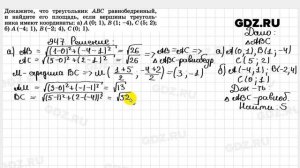 GDZ.RU
Докажите, что треугольник ABC равнобедренный,
и найдите его площадь, если вершины треуголь-
ника имеют координаты: а) A (0; 1), B (1; −4), C (5; 2);
б) A (−4; 1), B (−2; 4), C (0; 1).
947 Решение:
а) AB = √(1-0)²+(-4-1)² = √26
AC = √(5-0)²+(2-1)² = √26
AB = AC =>
=> △ABC - равнобедр.
M - середина BC => M (1+5/2; -4+2/2) = (3; -1)
AM = √(3-0)²+(-1-1)² = √13
BC = √(5-1)²+(2-(-4))² = √52
Дано:
△ABC
а) A(0;1), B(1;-4)
C(5;2)
б) A(-4;1), B(-2;4)
C(0;1)
Док-ть:
△ABC-равноб.
Найти: S